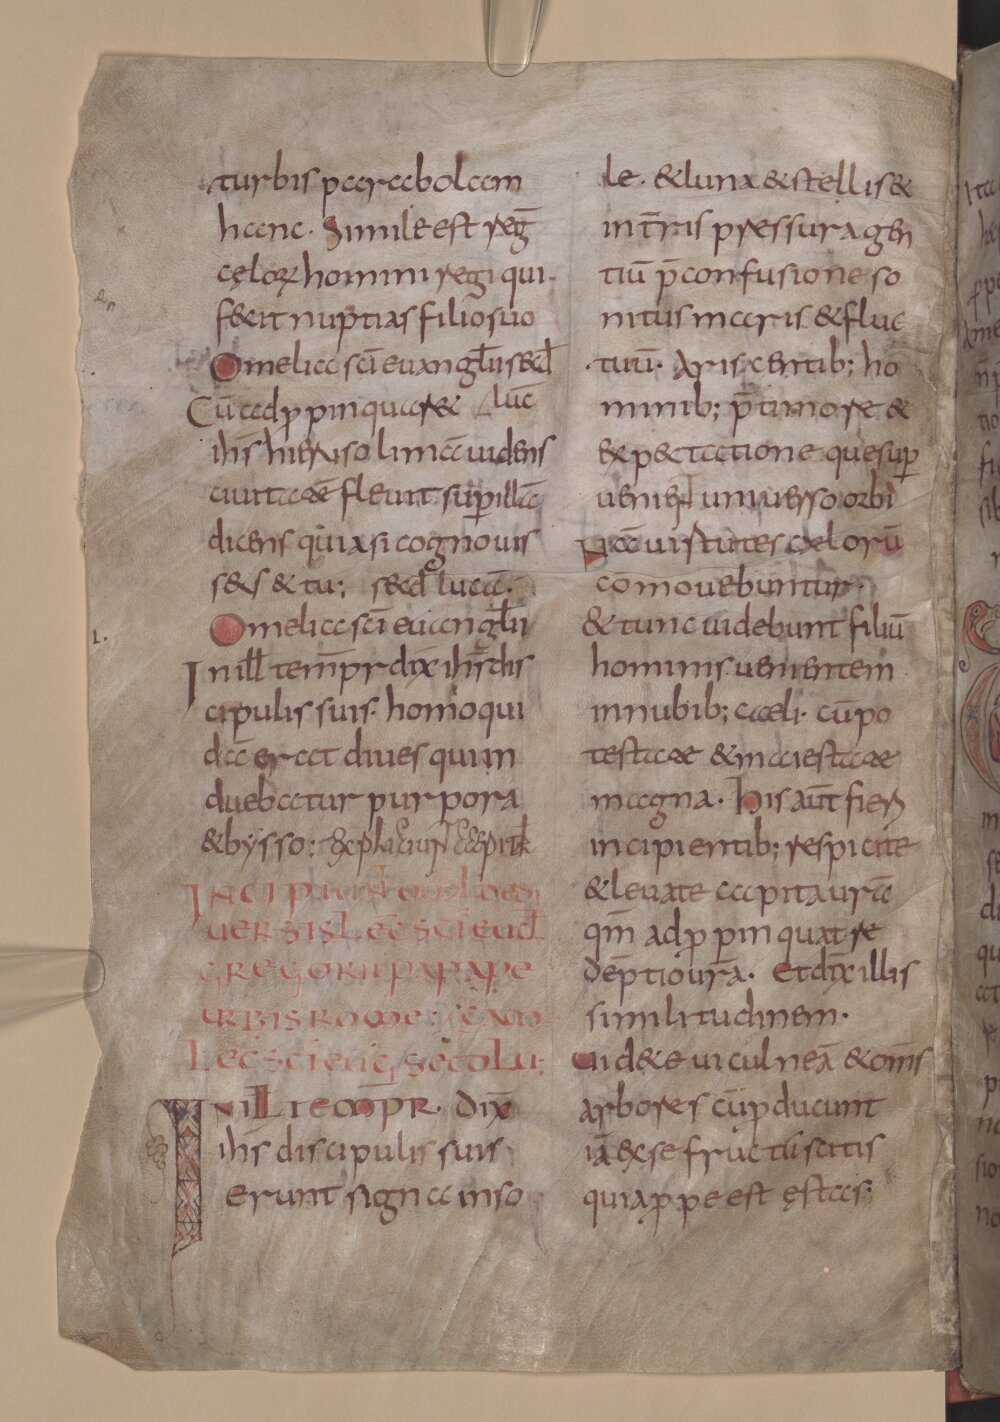 turbis parabolam
hanc. Simile est reg̅
cęloꝝ homini regi qui
fecit nuptias filio suo
Omelia sc̅i euangl̅ii sec̅d
Cu̅ adp̱pinquaret luc̅
ih̅s hierisolima̅ uidens
ciuitate̅ fleuit sup̱ illa̅
dicens quia si cognouis
s& & tu; sec̅d luca̅.
Omelia sc̅i euangl̅ii
1.
In ill̅ temp̅r dix̅ ih̅s dis
cipulis suis. homo qui
da̅ erat diues qui in
duebatur purpora
& bysso:
INCIPIUNT
UERSIS LEC̅ SC̅I EUC̅
GREGORII PAPAE
URBIS ROME: XM
LEC̅ SC̅I EUG̅ SEC̅D LU;
IN ILL TEMP̅R. Dix̅
ih̅s discipulis suis
erunt signa in so
le. & luna & stellis &
in t̅ris pressura gen
tiu̅ p̅ confusione so
nitus maris & fluc
tuu̅. Arescentib; ho
minib; p̅ timore &
exspectatione que sup̱
uenient uniuerso orbi
Na̅ uirtutes cęloru̅
co̅mouebuntur.
& tunc uidebunt filiu̅
hominis uenientem
in nubib; caeli. cu̅ po
testate & maiestate
magna. His aut̅ fieri
incipientib; respicite
& leuate capita ura̅
qm̅ adp̱pinquat re
de̅ptio ur̅a. Et dix̅ illis
similitudinem.
Uid&e ficulnea̅ & om̅s
arbores cu̅ p̱ducunt
ia̅ ex se fructu̅ scitis
quia p̱pe est ęstas;